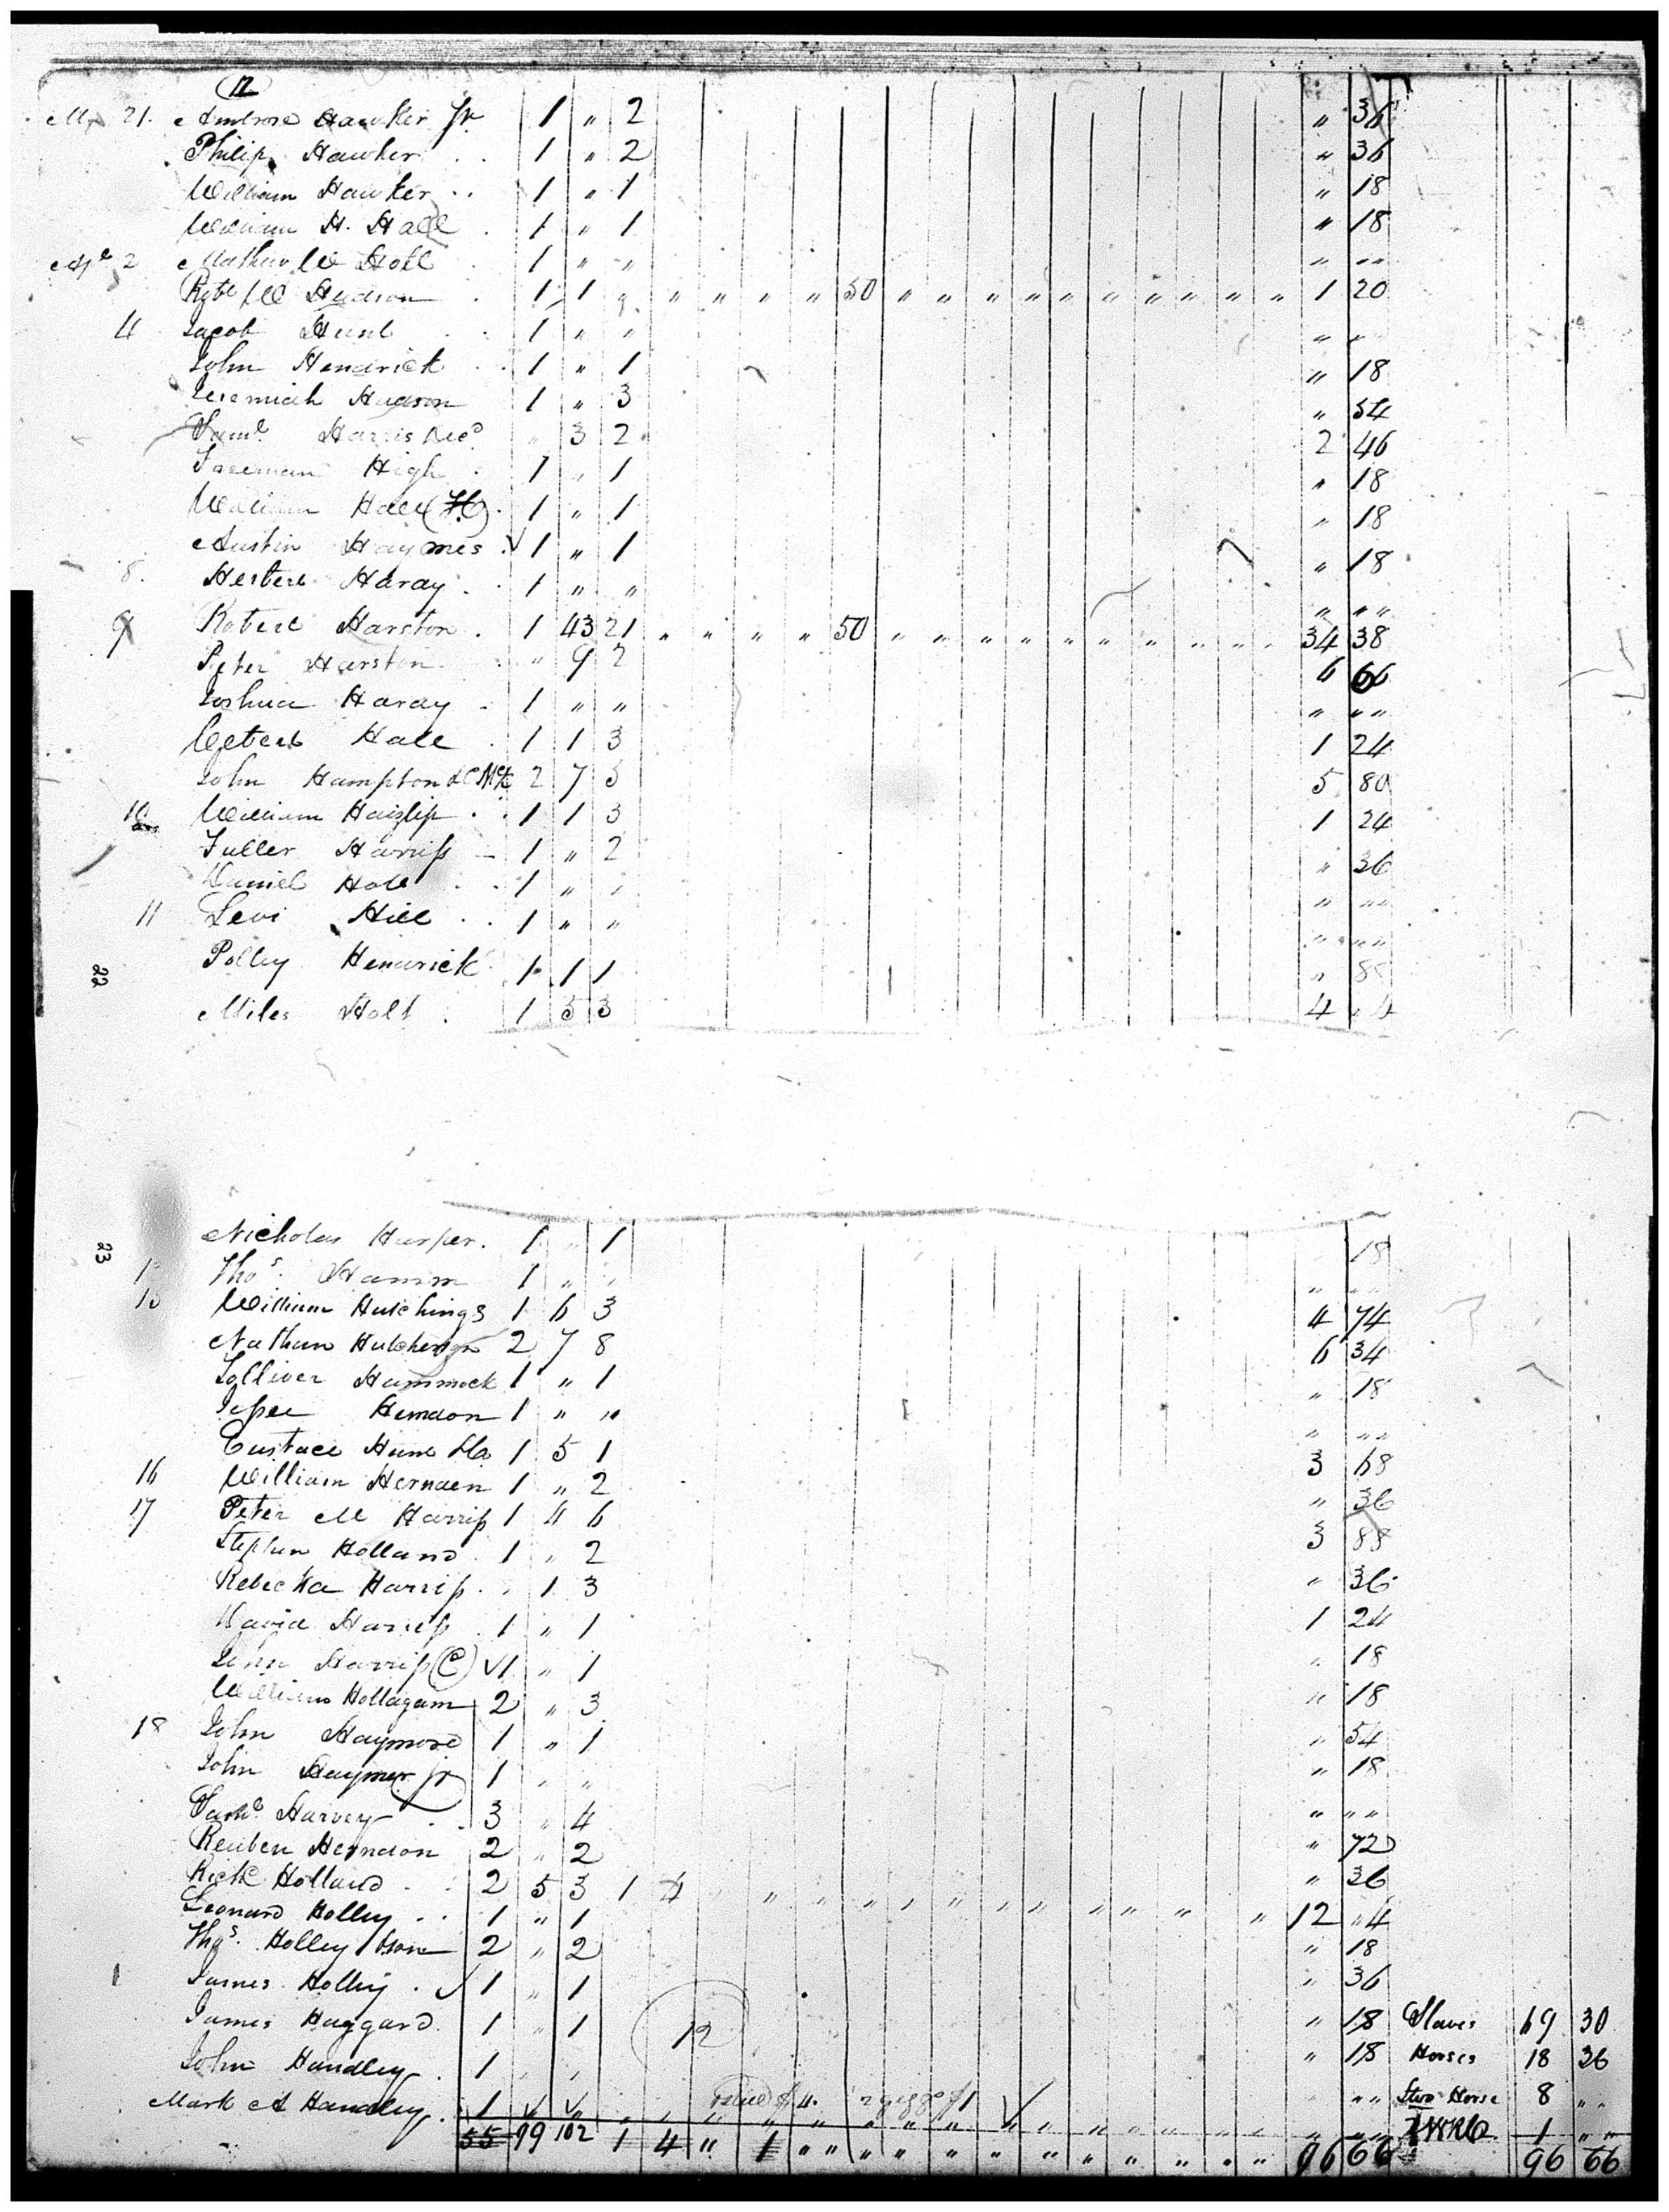 12
21. Ambrose Hawker Jr 1 " 2 " 36
Philip Hawker 1 " 2 " 36
William Hawker 1 " 1 " 18
William H. Hall 1 " 1 " 18
2 Mathew W Holl 1 " " " " "
Robt W Hudson 1 1 " " " " " 50 " " " " " " " " " " " 1 20
4 Jacob Hunt 1 " " " "
John Hendrick 1 " 1 " 18
Jeremiah Hudson 1 " 3 " 54
Saml Harris Decd " 3 2 2 46
Freeman High 1 " 1 " 18
William Hall 1 " 1 " 18
Austin Haymes 1 " 1 " 18
8. Haray 1 " " " " "
9 Robert Harston 1 43 21 " " " " 50 " " " " " " " " " " " 34 38
Peter Harston " 9 2 6 66
Joshua Haray 1 " " " " "
Hall 1 1 3 1 24
John Hampton 2 7 5 80
10 William Haizlip 1 1 3 1 24
Fuller Harriss 1 " 2 " 36
Daniel 1 " " " " "
11 Levi Hill 1 " " " " "
22
Polley Hendrick 1 1 1 "
Miles Holt 1 5 3 4 " 4
23
Nicholas Harper. 1 " 1 18
Thos. Hamm 1 " " " " "
William Hutchings 1 6 3 4 74
Nathan Hutcherson 2 7 8 6 34
Hammock 1 " 1 " 18
Jesse Herndon 1 " " " " "
Eustace Hunt 1 5 1 3 68
16 William Hernden 1 " 2 " 36
17 Peter M Harriss 1 4 6 3 88
Stephen Holland 1 " 2 " 36
Rebecka Harriss " 1 3 1 24
David Harriss 1 " 1 " 18
John Harriss (C) 1 " 1 " 18
William Hollagam 2 " 3 " 54
18 John Haymore 1 " 1 " 18
John Haymer jr 1 " " " " "
Saml Harvey 3 " 4 " 72
Reuben Herndon 2 " 2 " 36
Richd Holland 2 5 3 1 4 " " " " " " " " " " " " " 12 " 4
Leonard Holley 1 " 1 " 18
Thos. Holley & son 2 " 2 " 36
James Holley 1 " 1 " 18
James Haggard 1 " 1 12 " 18 Slaves 69 30
John Handley 1 " " " " Horses 18 36
Mark A Handley 1 " " " " Stud Horse 8 " "
55 99 102 1 4 " 1 " " " " " " " " " " " 96 66 1 " "
96 66